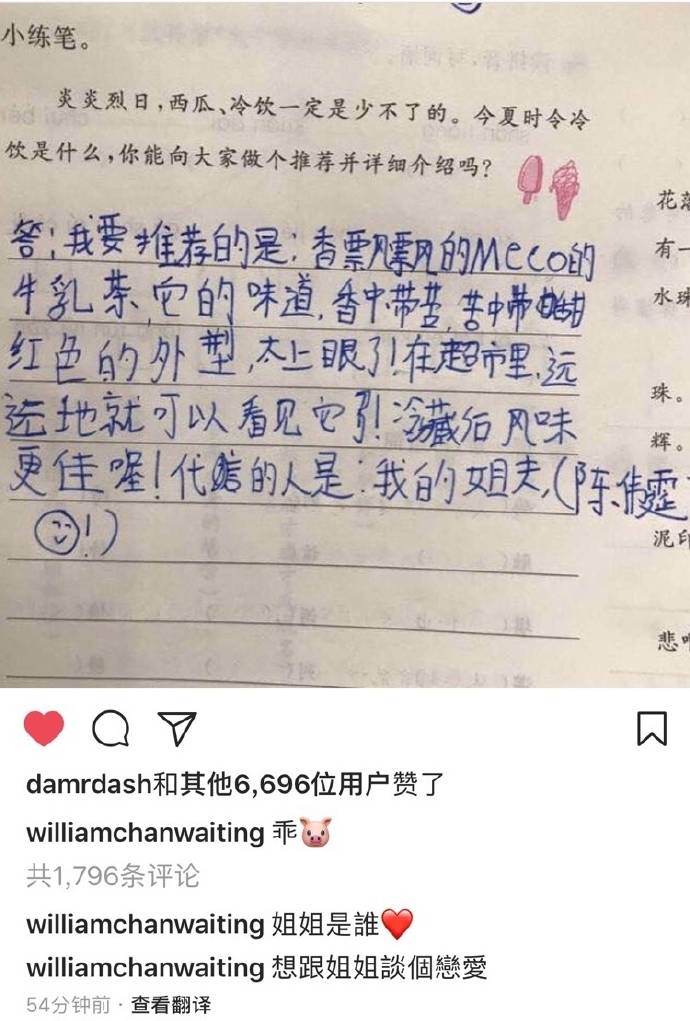 小练笔。
炎炎烈日，西瓜、冷饮一定是少不了的。今夏时令冷
饮是什么，你能向大家做个推荐并详细介绍吗？
花落
有一
水珠
珠。
辉。
泥印
悲
答：我要推荐的是：香飘飘的Meco的
牛乳茶，它的味道，香中带苦，苦中带甜
红色的外型，太上眼了！在超市里，远
远地就可以看见它了！冷藏后风味
更佳喔！代言的人是：我的姐夫，（陈伟霆
！）
damrdash和其他6,696位用户赞了
williamchanwaiting 乖🐷
共1,796条评论
williamchanwaiting 姐姐是誰❤️
williamchanwaiting 想跟姐姐談個戀愛
54分钟前 · 查看翻译